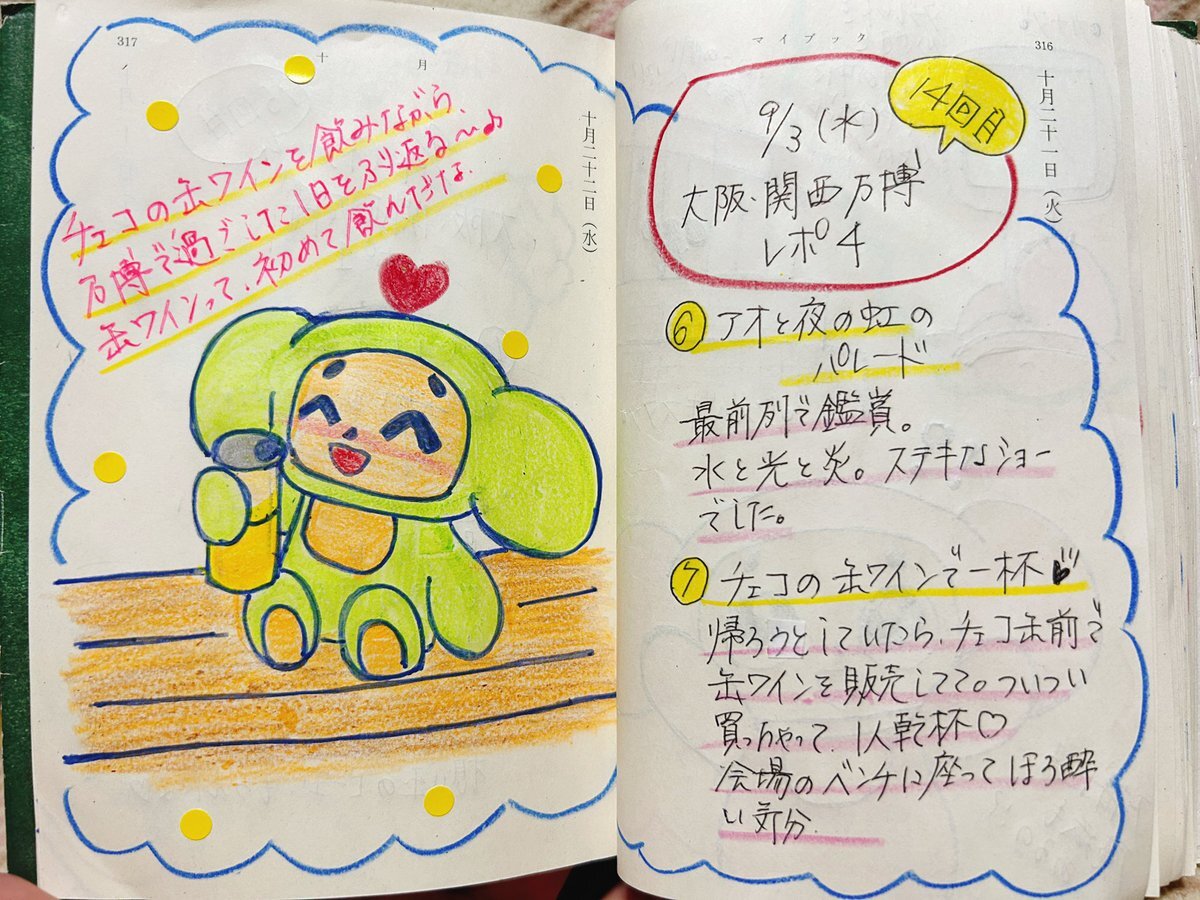 マイブック
316
十月二十一日(火)
14回目
9/3(水)
大阪・関西万博
レポ4
⑥アオと夜の虹の
パレード
最前列で鑑賞。
水と光と炎。ステキなショー
でした。
⑦チェコの缶ワインで一杯♥
帰ろうとしていたら、チェコ缶前で
缶ワインを販売してて。ついつい
買っちゃって、1人乾杯♡
会場のベンチに座ってほろ酔
い気分.
317
十月二十二日(水)
チェコの缶ワインを飲みながら、
万博で過ごした1日をふり返る〜♪
缶ワインって、初めて飲んだな.